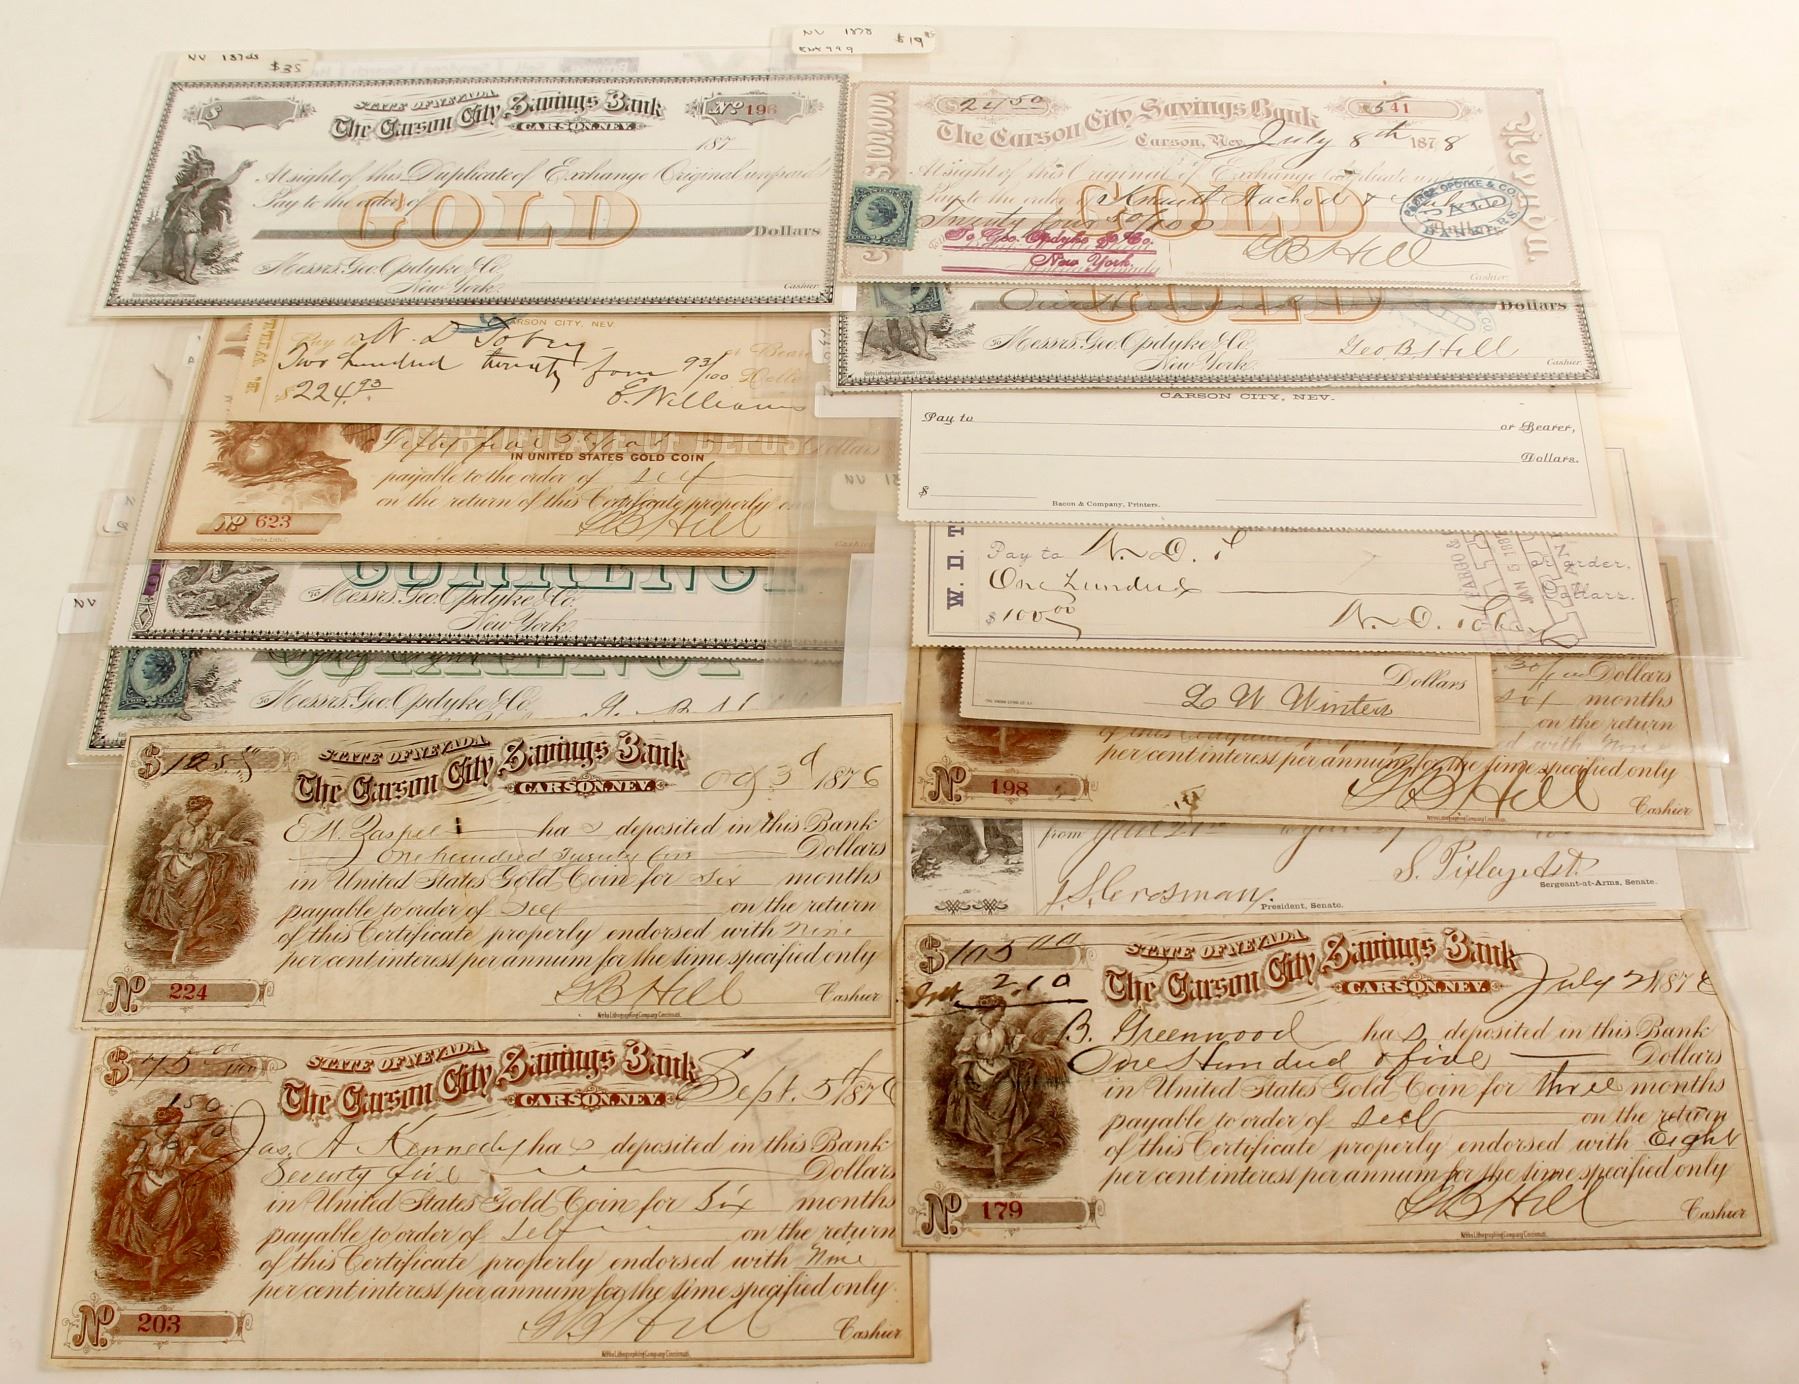 NV 1870s $35
$
STATE OF NEVADA
The Carson City Savings Bank
CARSON, NEV.
No 196
187
At sight of this Duplicate of Exchange Original unpaid
Pay to the order of
GOLD
Dollars
Messrs. Geo. Opdyke & Co.
New York.
Cashier
NV 1878 $19
$100,000.
Nevada.
$24 50
541
The Carson City Savings Bank
Carson, Nev. July 8th 1878
At sight of this Original of Exchange
Pay to the order of
GOLD
Twenty four 50/100
Dollars
GEORGE OPDYKE & CO.
PAID
BANKERS
To Geo. Opdyke & Co.
New York.
G B Hill
Cashier
One Hundred
GOLD
Dollars
Messrs. Geo. Opdyke & Co.
New York.
Geo B Hill
Cashier
CARSON CITY, NEV.
Pay to W. D. Tobey or Bearer
Two hundred twenty four 93/100 Dollars
$224.93
E. Williams
CERTIFICATE OF DEPOSIT
Fifty five Dollars
IN UNITED STATES GOLD COIN
payable to the order of Self
on the return of this Certificate properly
No 623
G B Hill
Cashier
CURRENCY
To Messrs. Geo. Opdyke & Co.
New York
CURRENCY
Messrs. Geo. Opdyke & Co.
CARSON CITY, NEV.
Pay to
or Bearer,
Dollars.
$
Bacon & Company, Printers.
W. D. T
Pay to W. D. T or order.
One hundred Dollars.
$100 00
W. D. Tobey
JAN 5
Dollars
L W Winters
30/100 Dollars
months
on the return
with Nine
per cent interest per annum for the time specified only
No. 198
G B Hill
Cashier
from June 21st to June 27
S. Pixley Asst.
Sergeant-at-Arms, Senate.
J. S. Crosman.
President, Senate.
$125
STATE OF NEVADA
The Carson City Savings Bank
CARSON, NEV.
Oct 3d 1876
has deposited in this Bank
One hundred Twenty five Dollars
in United States Gold Coin for Six months
payable to order of Self on the return
of this Certificate properly endorsed with Nine
per cent interest per annum for the time specified only
No. 224
G B Hill
Cashier
Krebs Lithographing Company Cincinnati.
$75 00/100
150
STATE OF NEVADA
The Carson City Savings Bank
CARSON, NEV.
Sept. 5th 1876
Jas. A Kennedy has deposited in this Bank
Seventy five Dollars
in United States Gold Coin for Six months
payable to order of Self on the return
of this Certificate properly endorsed with Nine
per cent interest per annum for the time specified only.
No. 203
G B Hill
Cashier
Krebs Lithographing Company Cincinnati.
$105 00
Int 2.10
STATE OF NEVADA
The Carson City Savings Bank
CARSON, NEV.
July 21 1876
B. Greenwood has deposited in this Bank
One Hundred & five Dollars
in United States Gold Coin for three months
payable to order of Self on the return
of this Certificate properly endorsed with Eight
per cent interest per annum for the time specified only
No. 179
G B Hill
Cashier
Krebs Lithographing Company Cincinnati.